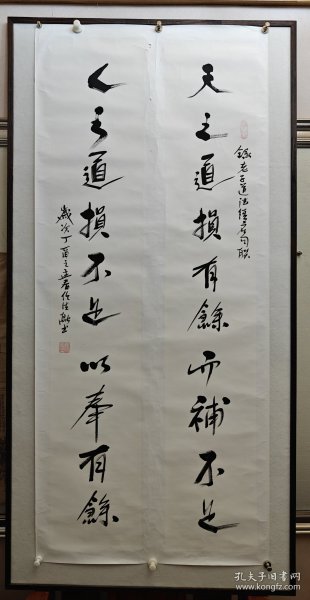 天之道損有餘而補不足
錄老子道德經句聯
人之道損不足以奉有餘
歲次丁酉之孟春任法融書
孔夫子旧书网
www.kongfz.com